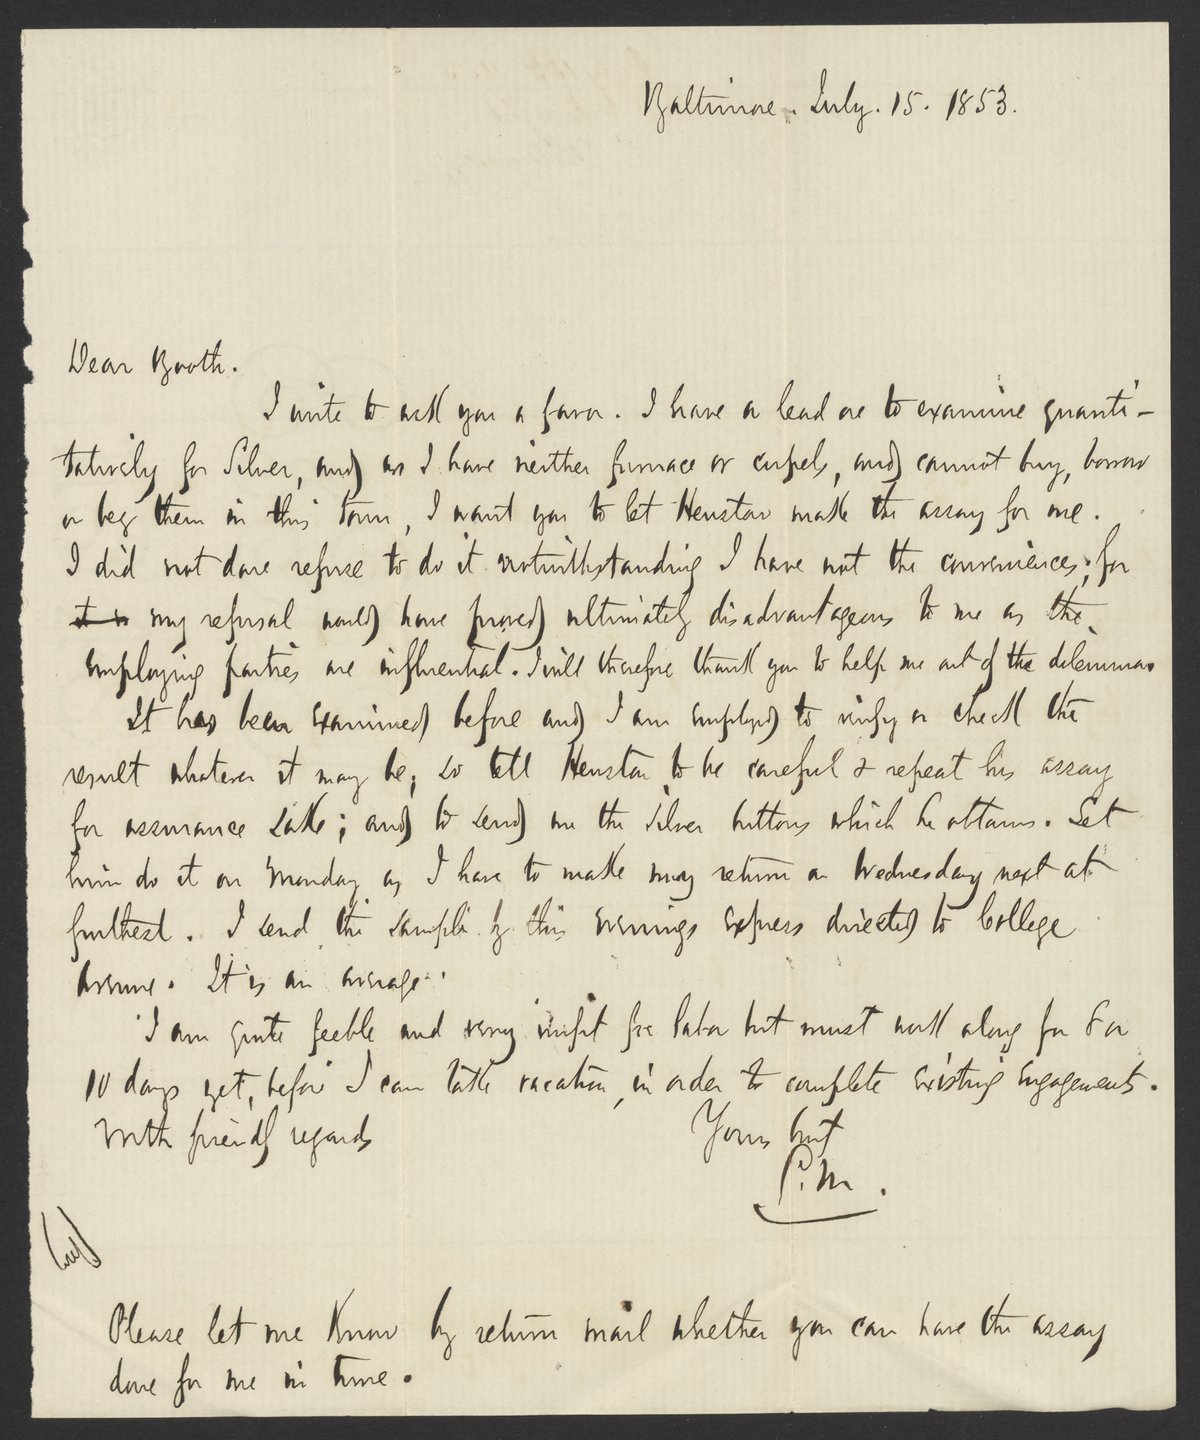 Baltimore. July. 15. 1853.
Dear Booth.
I write to ask you a favor. I have a lead ore to examine quanti-
tatively for Silver, and as I have neither furnace or cupels, and cannot buy, borrow
or beg them in this town, I want you to let Heuston make the assay for me.
I did not dare refuse to do it notwithstanding I have not the conveniences; for
it is my refusal would have proved ultimately disadvantageous to me as the
employing parties are influential. I will therefore thank you to help me out of the dilemma
It has been examined before and I am employed to verify or check the
result whatever it may be; so tell Heuston to be careful & repeat his assay
for assurance sake; and to send me the silver buttons which he obtains. Let
him do it on Monday as I have to make my return on Wednesday next at
furthest. I send the sample by this evenings express directed to College
Avenue. It is an average.
I am quite feeble and very unfit for labor but must work along for 8 or
10 days yet, before I can take vacation, in order to complete existing engagements.
With friendly regards Yours but
C. M.
Please let me know by return mail whether you can have the assay
done for me in time.